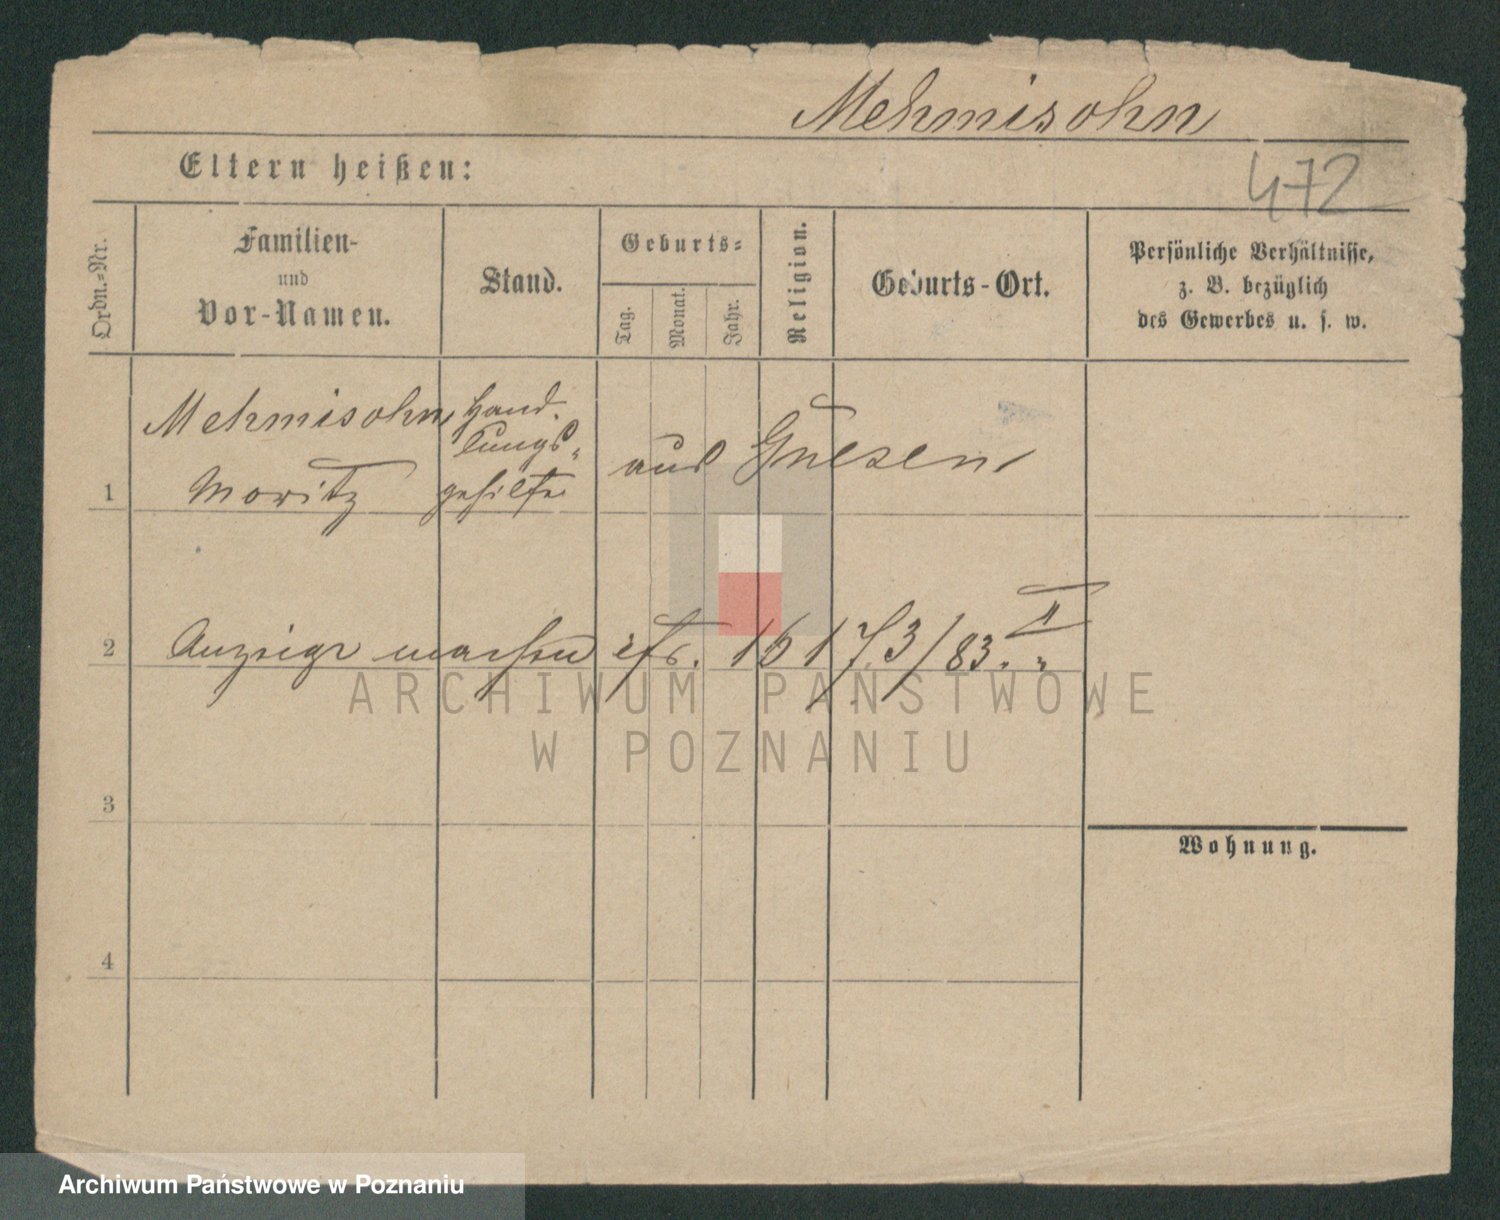 Mehmisohn
472
Eltern heißen:
Ordn.-Nr.
Familien-
und
Vor-Namen.
Stand.
Geburts-
Tag.
Monat.
Jahr.
Religion.
Geburts-Ort.
Persönliche Verhältnisse,
z. B. bezüglich
des Gewerbes u. s. w.
1
Mehmisohn,
Moritz
Hand-
lungs-
gehilfe
aus Gnesen
2
Anzeige machen
173/83. II
ARCHIWUM PAŃSTWOWE
W POZNANIU
3
Wohnung.
4
Archiwum Państwowe w Poznaniu